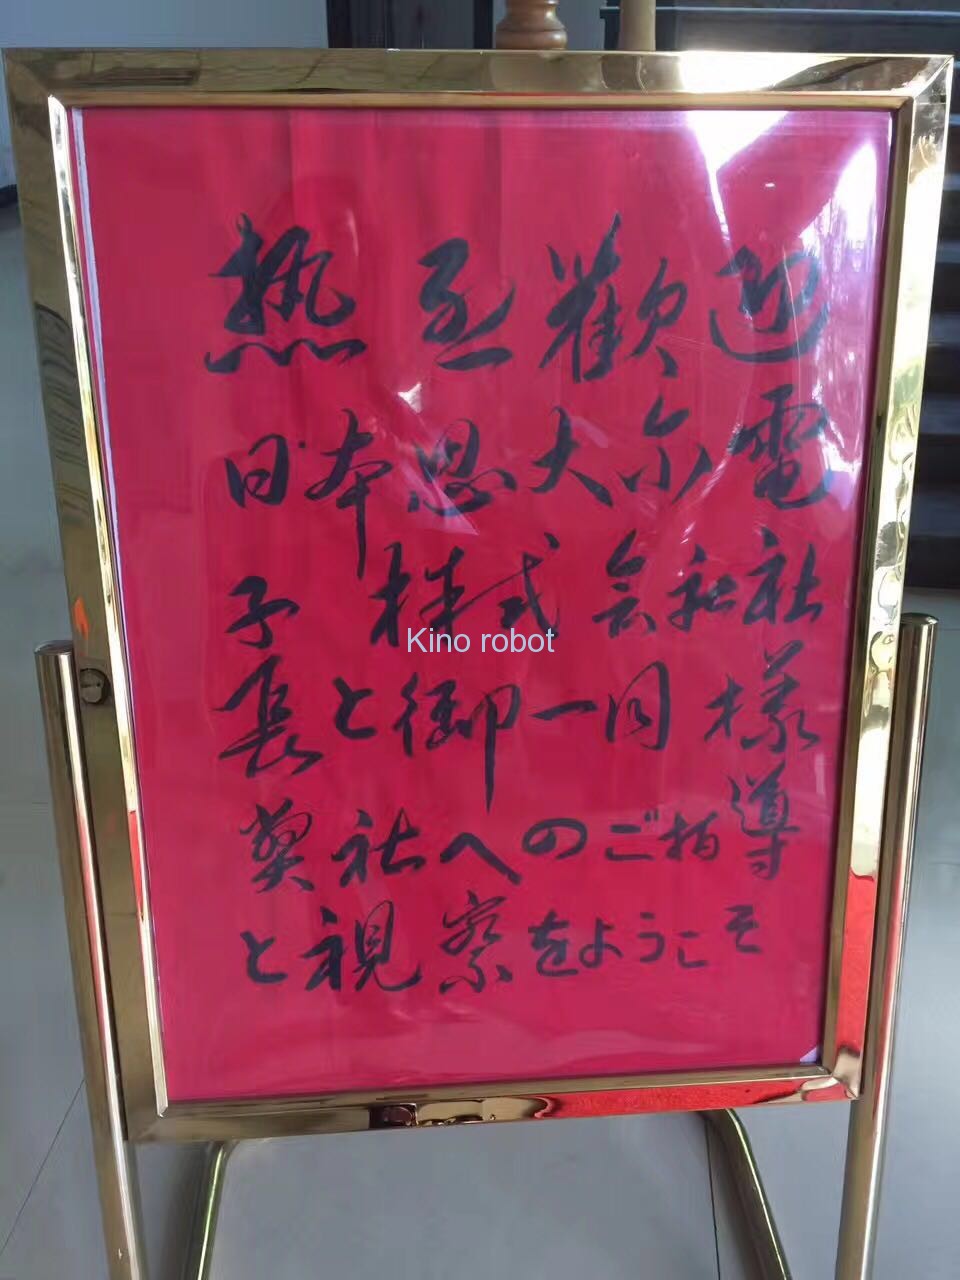 热烈歡迎
日本思大尔電
子株式会社社
長と御一同様
弊社へのご指導
と視察をようこそ
Kino robot